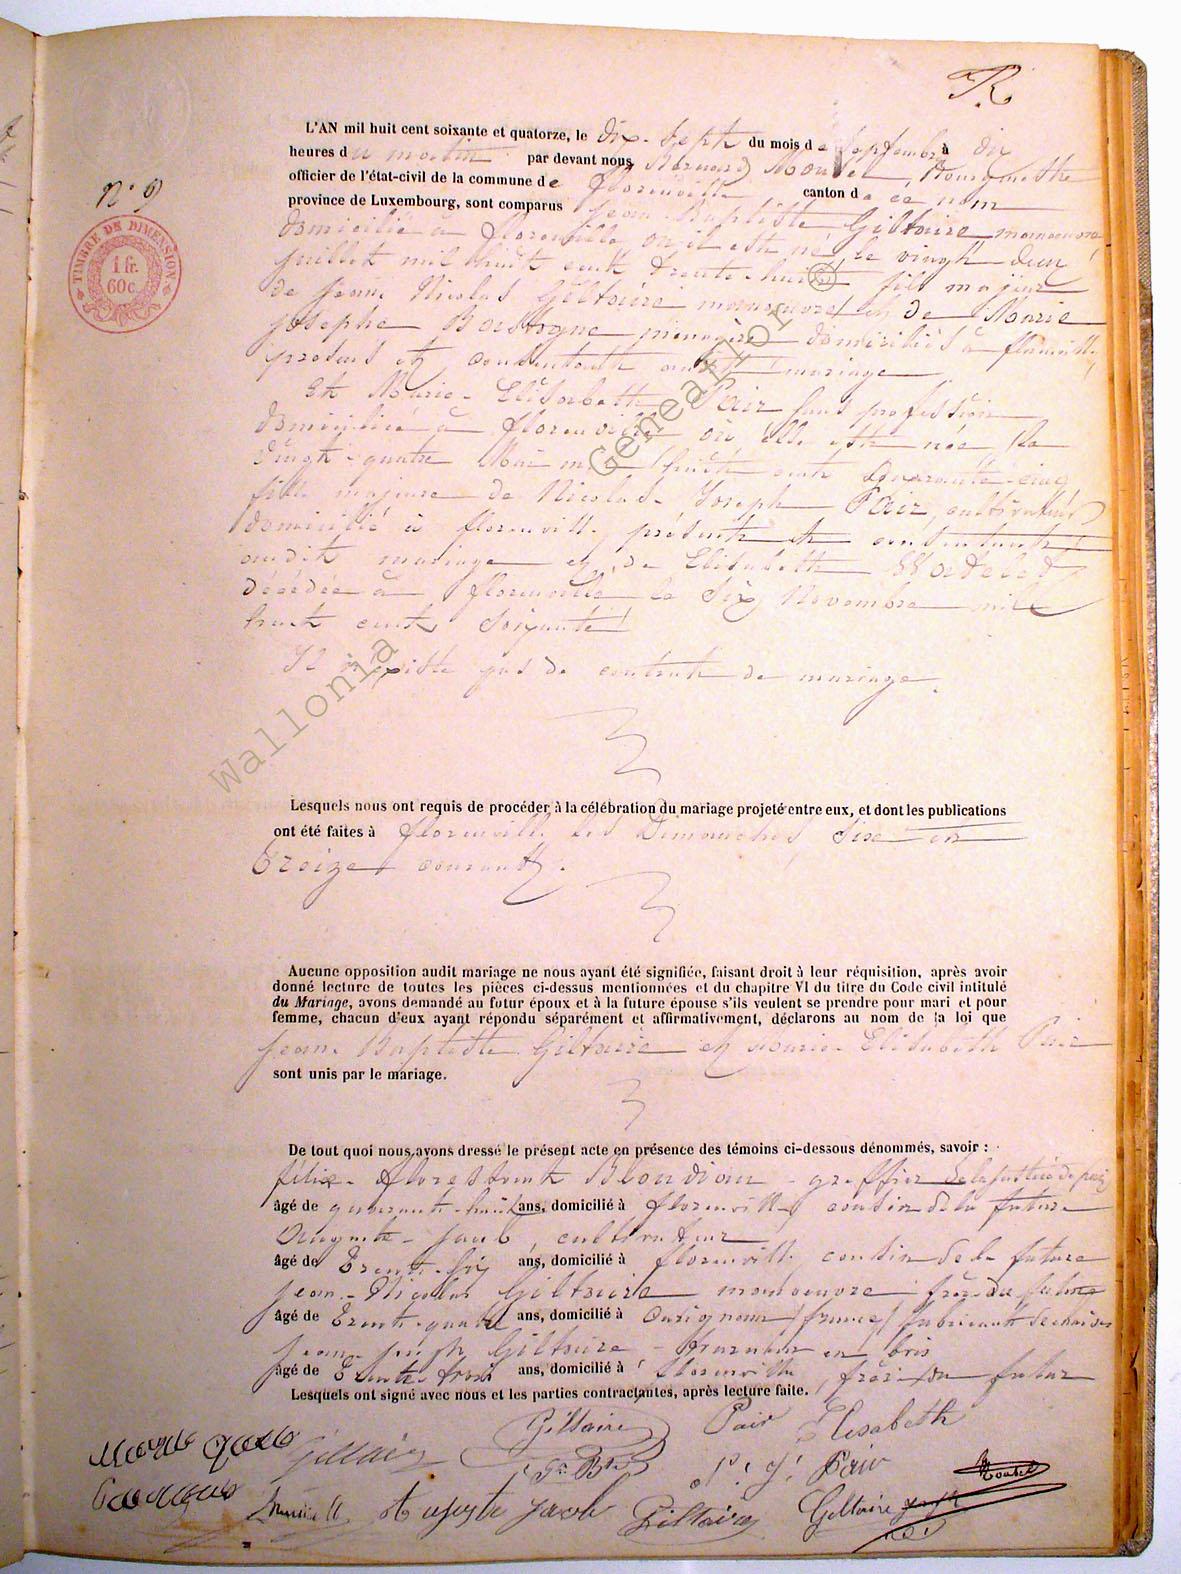 R
N° 9
TIMBRE DE DIMENSION
1 fr.
60 c.
L'AN mil huit cent soixante et quatorze, le dix-sept du mois de Septembre à dix
heures du matin par devant nous Bernard Bourgmestre
officier de l'état-civil de la commune de florenville canton de ce nom
province de Luxembourg, sont comparus Jean-Baptiste Giltaire manoeuvre
domicilié à florenville où il est né le vingt deux
juillet mil huit cent trente-huit fils majeur
de Jean Nicolas Giltaire manoeuvre et de Marie
Josephe Bastogne ménagère domiciliés à florenville
présents et consentants audit mariage
Et Marie-Elisabeth Pair sans profession
domiciliée à florenville où elle est née le
vingt-quatre Mai mil huit cent quarante-cinq
fille majeure de Nicolas-Joseph Pair, cultivateur
domicilié à florenville, présent et consentant
audit mariage et de Elisabeth Watelet
décédée à florenville le Six Novembre mil
huit cent soixante
Il n'existe pas de contrat de mariage.
Lesquels nous ont requis de procéder à la célébration du mariage projeté entre eux, et dont les publications
ont été faites à florenville les Dimanches, Six et
treize courant.
Aucune opposition audit mariage ne nous ayant été signifiée, faisant droit à leur réquisition, après avoir
donné lecture de toutes les pièces ci-dessus mentionnées et du chapitre VI du titre du Code civil intitulé
du Mariage, avons demandé au futur époux et à la future épouse s'ils veulent se prendre pour mari et pour
femme, chacun d'eux ayant répondu séparément et affirmativement, déclarons au nom de la loi que
Jean Baptiste Giltaire et Marie-Elisabeth Pair
sont unis par le mariage.
De tout quoi nous avons dressé le présent acte en présence des témoins ci-dessous dénommés, savoir :
félix greffier de la justice de paix
âgé de quarante-huit ans, domicilié à florenville, cousin de la future
Auguste Jacob, cultivateur
âgé de trente-six ans, domicilié à florenville cousin de la future
Jean-Nicolas Giltaire manoeuvre frère du futur
âgé de trente-quatre ans, domicilié à (france) fabricant de chaises
Jean-Joseph Giltaire en bois
âgé de trente trois ans, domicilié à florenville, frère du futur
Lesquels ont signé avec nous et les parties contractantes, après lecture faite.
Giltaire Pair Elisabeth
Giltaire
J. Bte N. J. Pair
Auguste Jacob Giltaire Giltaire
Wallonia
GeneaLor ©